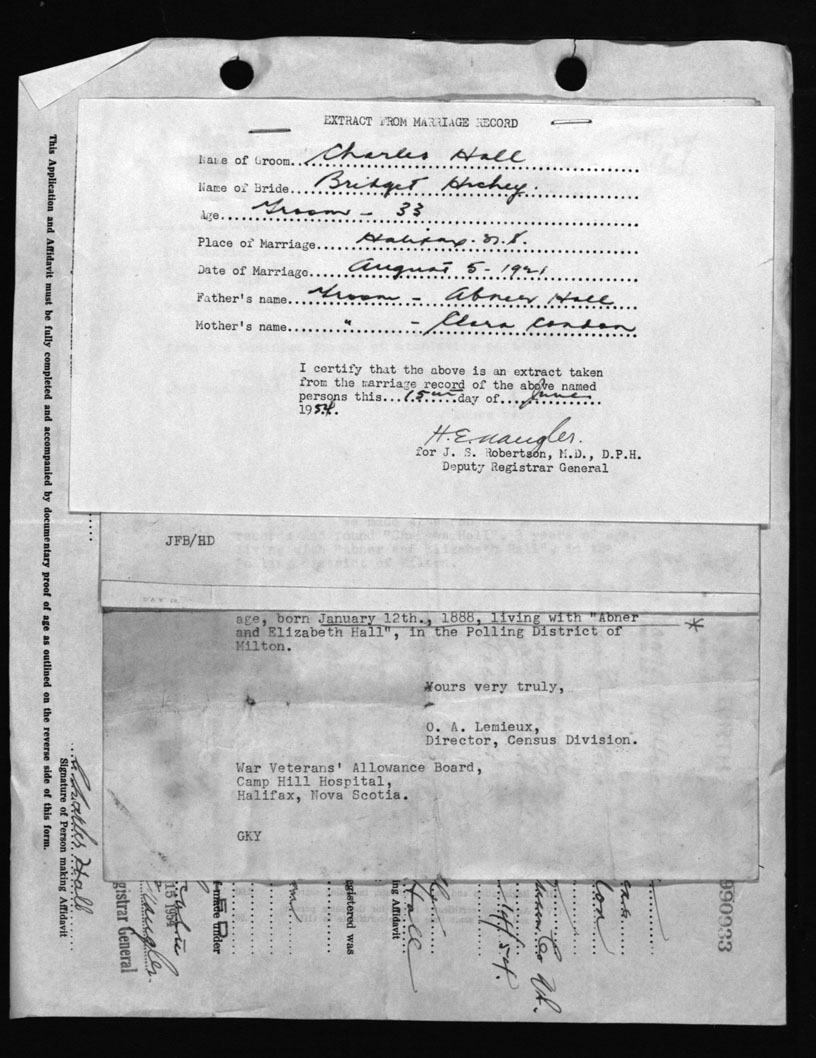 EXTRACT FROM MARRIAGE RECORD
Name of Groom...Charles Hall
Name of Bride...Bridget Hichey.
Age....Groom - 33
Place of Marriage....Halifax. N.S.
Date of Marriage....August 5 - 1921
Father's name....Groom - Abner Hall
Mother's name...." - Clara Condon
I certify that the above is an extract taken
from the marriage record of the above named
persons this...15th....day of....June
1954.
H.E. Naugler.
for J. S. Robertson, M.D., D.P.H.
Deputy Registrar General
JFB/HD
age, born January 12th., 1888, living with "Abner
and Elizabeth Hall", in the Polling District of *
Milton.
Yours very truly,
O. A. Lemieux,
Director, Census Division.
War Veterans' Allowance Board,
Camp Hill Hospital,
Halifax, Nova Scotia.
GKY
This Application and Affidavit must be fully completed and accompanied by documentary proof of age as outlined on the reverse side of this form.
Charles Hall
Signature of Person making Affidavit
15 1954
Naugler
gistrar General
E D
f-made under
egistered was
Hall
ng Affidavit
14/54.
990933